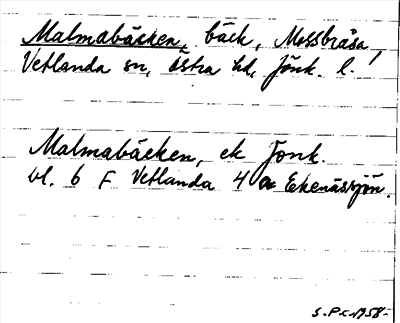 Malmabäcken, bäck, Mossbråsa,
Vetlanda sn, östra hd, Jönk. l.
Malmabäcken, ek Jönk.
bl. 6 F Vetlanda 4 a Ekenässjön.
S.P.-c. 1958-